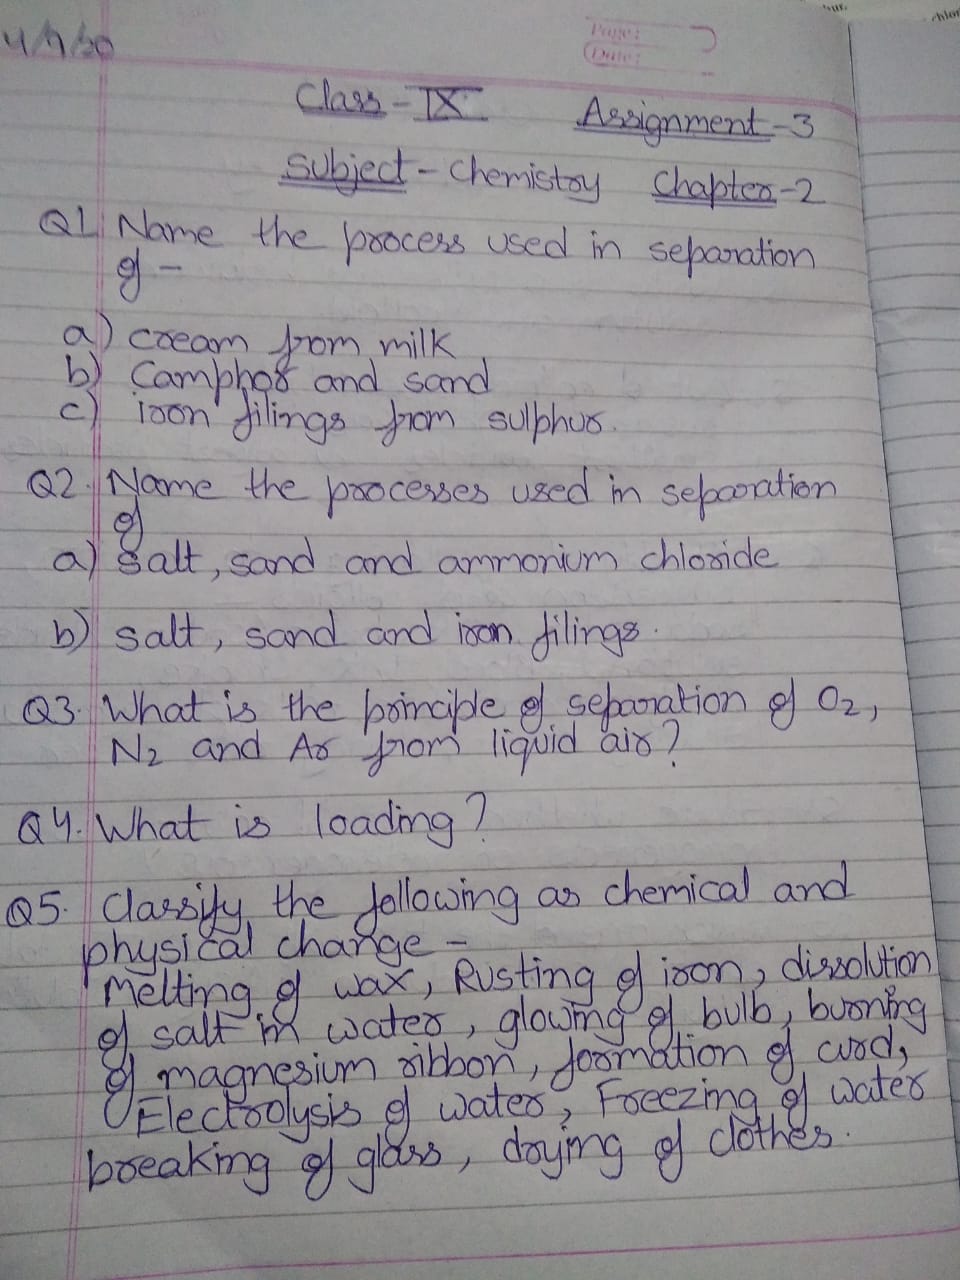 4/7/20
Page:
Date:
Class - IX Assignment - 3
Subject - Chemistry Chapter - 2
Q1 Name the process used in separation
of -
a) cream from milk
b) Camphor and sand
c) iron filings from sulphur.
Q2. Name the processes used in separation
of
a) Salt, sand and ammonium chloride
b) salt, sand and iron filings.
Q3. What is the principle of separation of O2,
N2 and Ar from liquid air?
Q4. What is loading?
Q5. Classify the following as chemical and
physical change -
Melting of wax, Rusting of iron, dissolution
of salt in water, glowing of bulb, burning
of magnesium ribbon, formation of curd,
Electrolysis of water, Freezing of water
breaking of glass, drying of clothes.